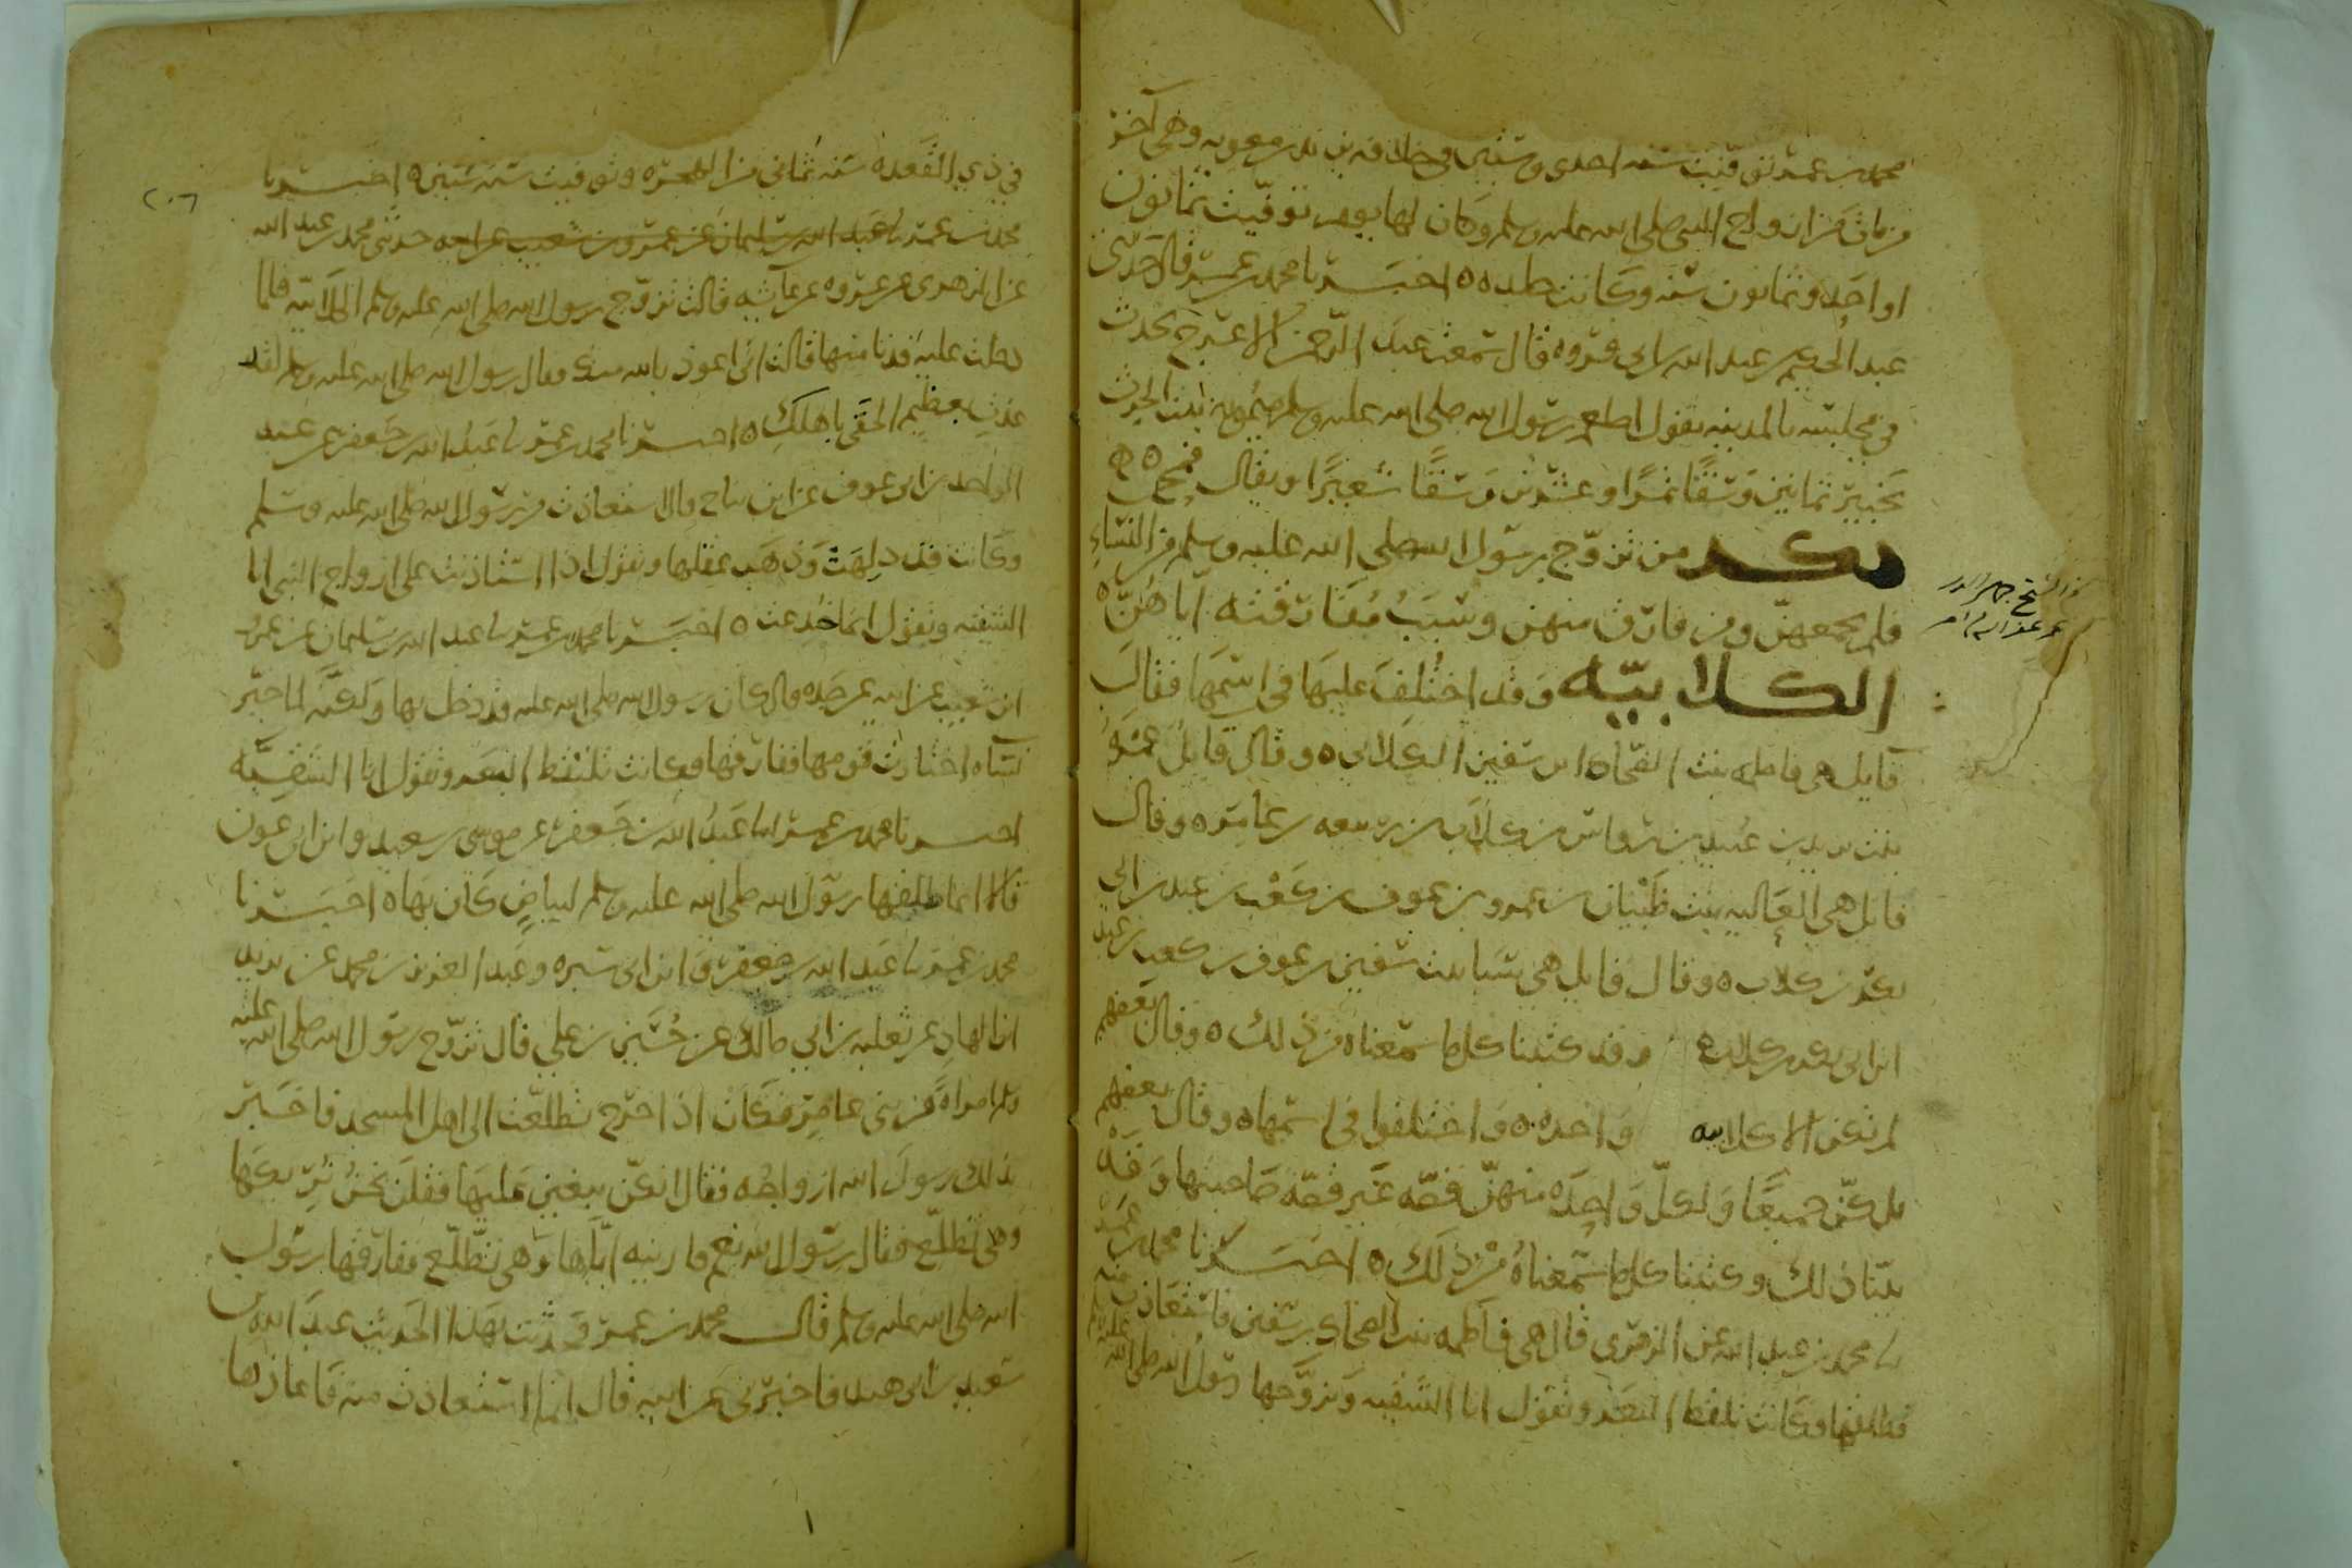 محمد بن عمر توفيت سنه احدى وستين في خلافه يزيد بن معويه وهي آخر
من مات من ازواج النبي صلى الله عليه وسلم وكان لها يوم توفيت ثمانون
او احدى وثمانون سنه وكانت جلده ه اخبرنا محمد بن عمر قال حدثني
عبد الحكيم بن عبد الله بن ابي فروه قال سمعت عبد الرحمن الاعرج يحدث
في مجلسه بالمدينه يقول اطعم رسول الله صلى الله عليه وسلم ميمونه بنت الحرث
بخيبر ثمانين وسقًا تمرًا وعشرين وسقًا شعيرًا ويقال قمح ه
ذكر من تزوج رسول الله صلى الله عليه وسلم من النساء
فلم يجمعهن ومن فارق منهن وسبب مفارقته اياهن ه
الكلابيّه وقد اختُلف علينا في اسمها فقال
قايل هي فاطمه بنت الضحاك ابن سفين الكلابي ه وقال قايل عمره
بنت يزيد بن عبيد بن رواس بن كلاب بن ربيعه بن عامر ه وقال
قائل هي العاليه بنت ظبيان بن عمرو بن عوف بن كعب بن عبد بن ابي
بكر بن كلاب ه وقال قايل هي سبا بنت سفين بن عوف بن كعب بن عبد
ابن ابي بكر بن كلاب ه وقد كتبنا كل ما سمعناه من ذلك ه وقال بعضهم
لم تكن الا كلابيه واحده ه واختلفوا في اسمها ه وقال بعضهم
بل كنّ جميعًا ولكلّ واحده منهنّ قصّه غير قصّه صاحبتها وقد
بيّنا ذلك وكتبنا كل ما سمعناه من ذلك ه اخبرنا محمد بن عمر
نا محمد بن عبد الله عن الزهري قال هي فاطمه بنت الضحاك بن سفين فاستعاذت منه
فطلقها وكانت تلقط البعر وتقول انا الشقيه وتزوّجها رسول الله صلى الله عليه وسلم
في ذي القعده سنه ثماني من الهجره وتوفيت سنه ستين ه اخبرنا
محمد بن عمر نا عبد الله بن سليمان عن عمرو بن شعيب عن ابيه حدثني محمد بن عبد الله
عن الزهري عن عروه عن عآئشه قالت تزوّج رسول الله صلى الله عليه وسلم الكلابيّه فلما
دخلت عليه فدنا منها قالت اني اعوذ بالله منك فقال رسول الله صلى الله عليه وسلم لقد
عذتِ بعظيم الحقي باهلكِ ه اخبرنا محمد بن عمر نا عبد الله بن جعفر عن عبد
الواحد بن ابي عون عن ابن مناح قال استعاذت من رسول الله صلى الله عليه وسلم
وكانت قد دلهت وذهب عقلها وتقول اذا استاذنت على ازواج النبي انا
الشقيه وتقول انما خُدعت ه اخبرنا محمد بن عمر نا عبد الله بن سليمان عن عمرو
ابن شعيب عن ابيه عن جده قال كان رسول الله صلى الله عليه قد دخل بها ولكنه لما خيّر
نساه اختارت قومها ففارقها فكانت تلتقط البعر وتقول انا الشقيّه
اخبرنا محمد بن عمر نا عبد الله بن جعفر عن موسى بن سعيد وابن ابي عون
قالا انما طلقها رسول الله صلى الله عليه وسلم لبياضٍ كان بها ه اخبرنا
محمد بن عمر نا عبد الله بن جعفر وابن ابي سبره وعبد العزيز بن محمد عن يزيد
ابن الهاد عن ثعلبه بن ابي مالك عن حُسين بن علي قال تزوّج رسول الله صلى الله عليه
وسلم امراةً من بني عامر فكان اذا خرج تطلعت الى اهل المسجد فاخبر
بذلك رسول الله ازواجُه فقال انكنّ تبغين عليها فقلن نحن نُريكها
وهي تطّلع فقال رسول الله نعم فارينه ايّاها وهي تتطلّع ففارقها رسول
الله صلى الله عليه وسلم قال محمد بن عمر فحدثت بهذا الحديث عبد الله بن
سعيد بن ابي هند فاخبرني عن ابيه قال انما استعاذت منه فاعاذها